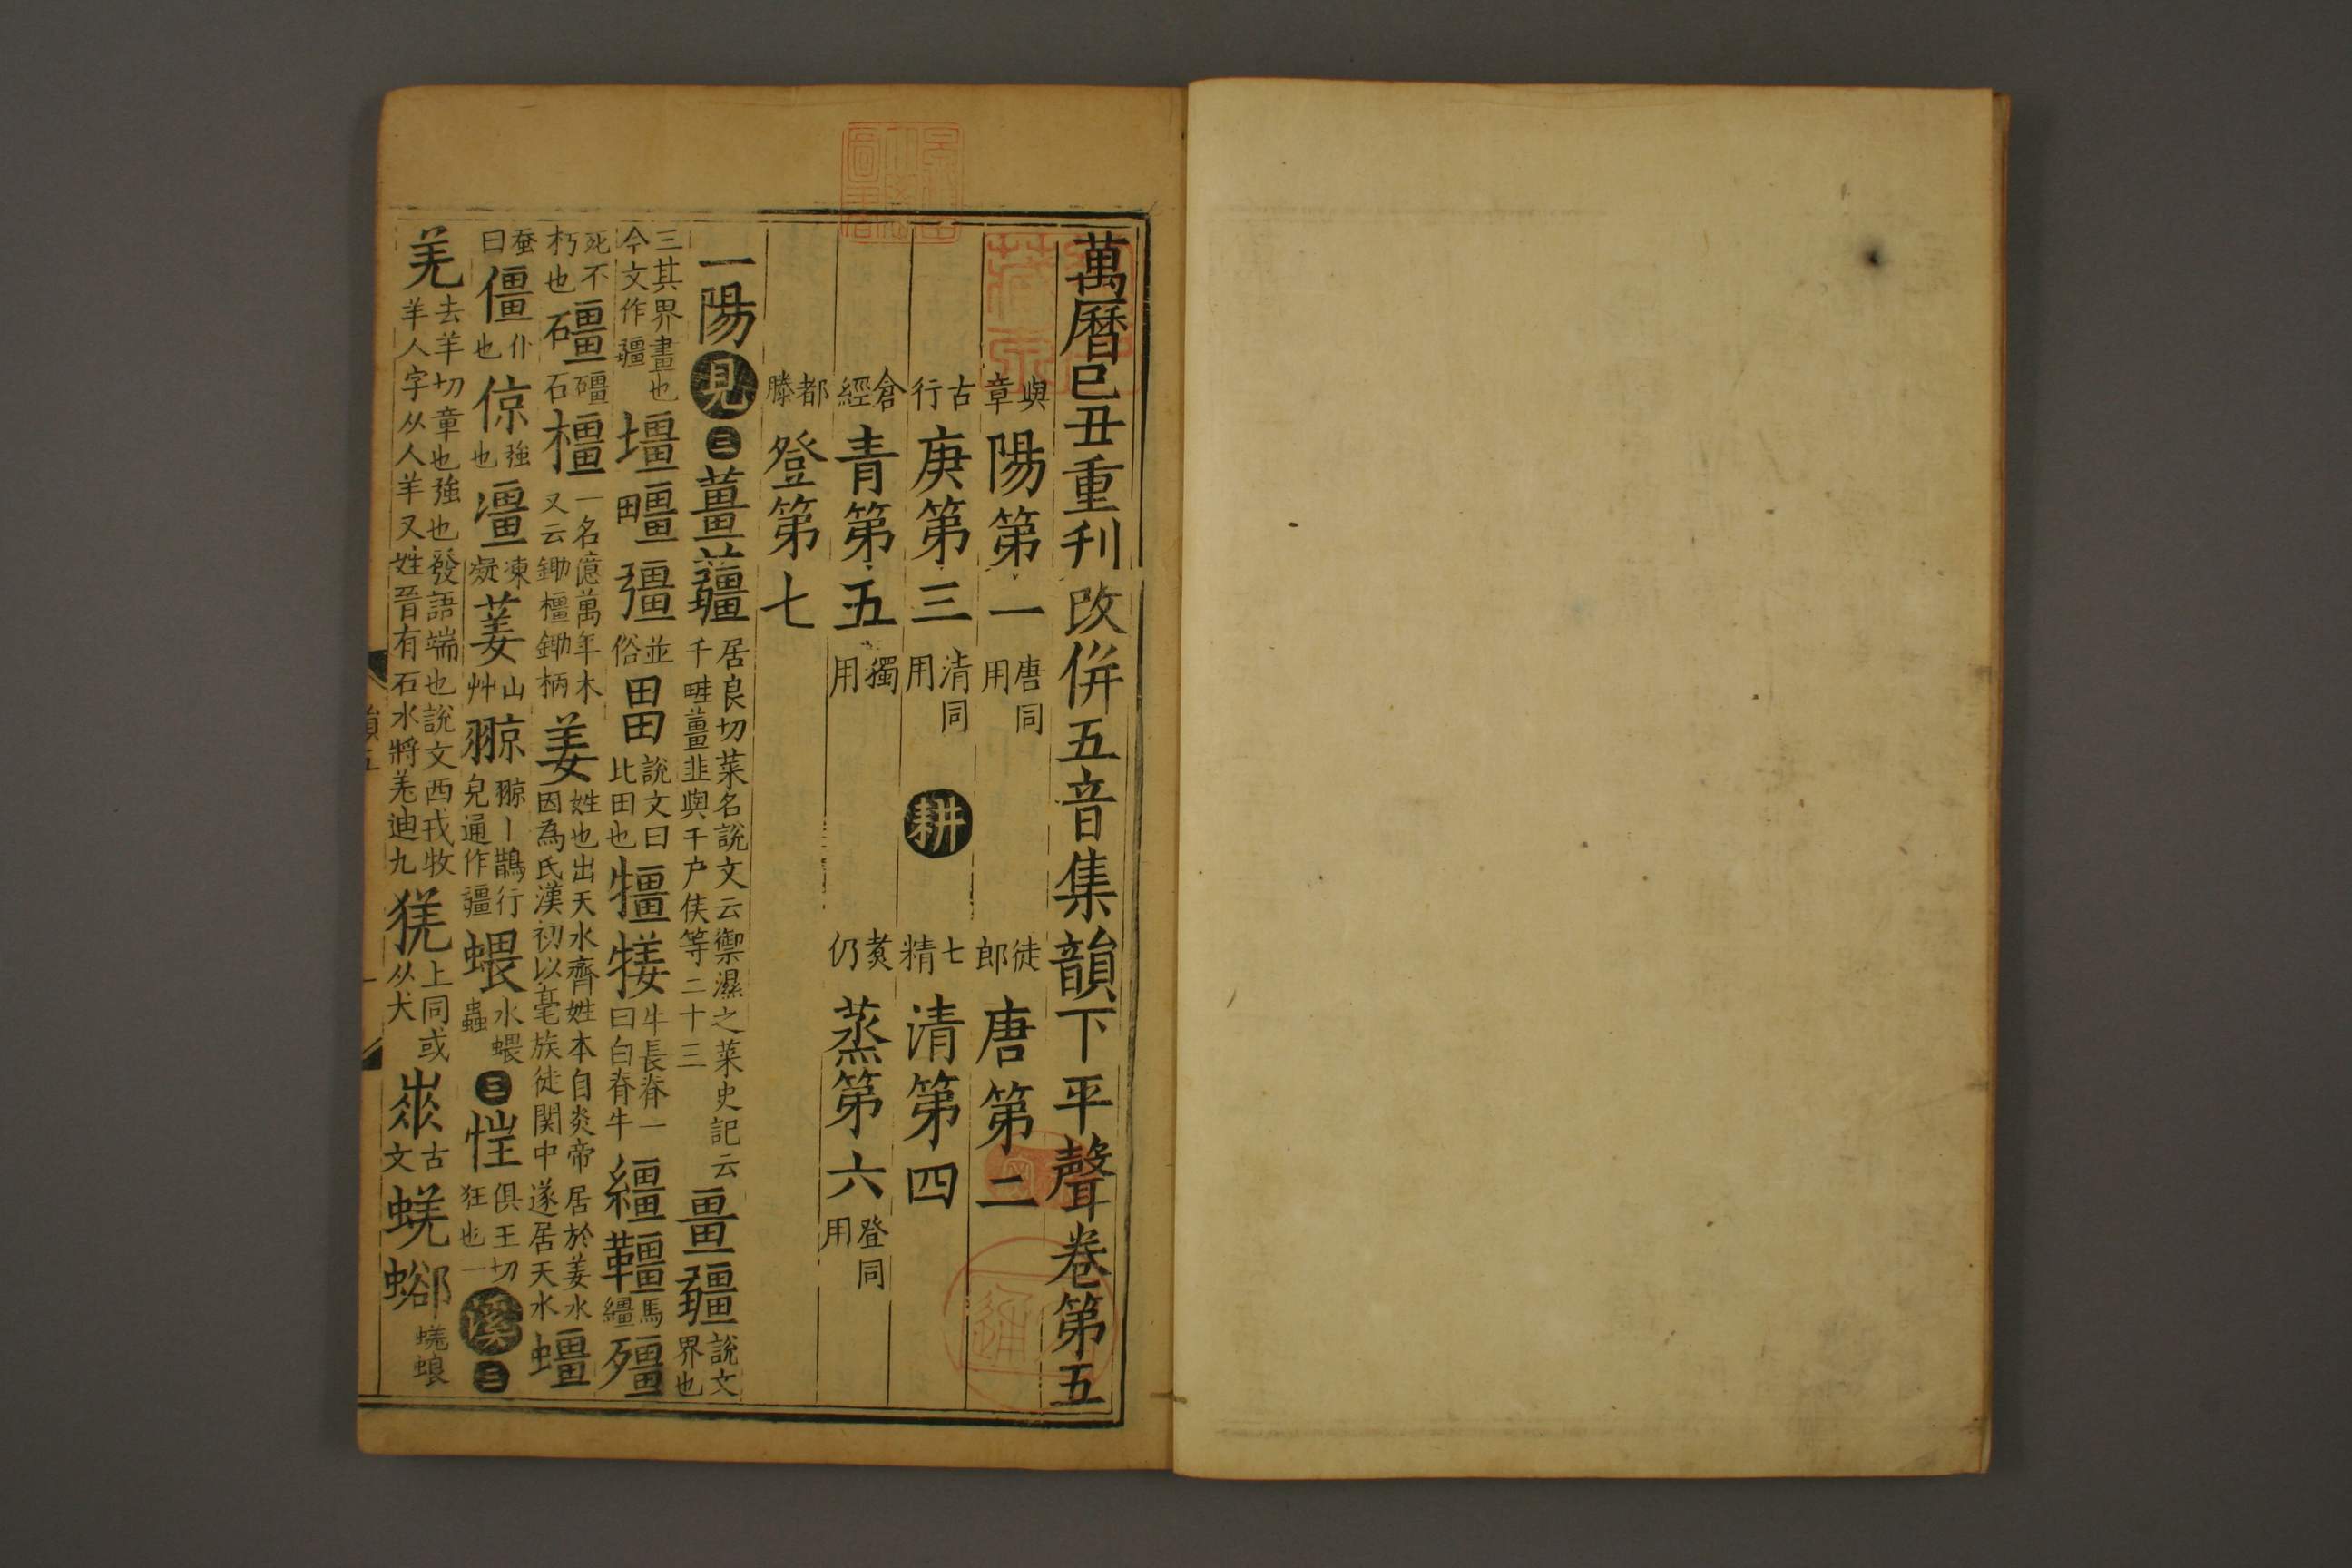 萬曆己丑重刊改併五音集韻下平聲卷第五
與章陽第一唐同用 徒郎唐第二
古行庚第三清同用 耕 七精清第四
倉經青第五獨用 煑仍蒸第六登同用
都滕登第七
一陽見三薑䕬居良切菜名說文云禦濕之菜史記云千畦薑韭與千户侯等二十三畺疆說文界也
三其界畫也今文作疆壃㽵彊並俗畕說文曰比田也犟㹔牛長脊一曰白脊牛繮韁馬繮殭
死不朽也礓礓石橿一名億萬年木又云鋤橿鋤柄姜姓也出天水齊姓本自炎帝居於姜水因為氏漢初以亳族徒関中遂居天水蠠
蚕曰僵仆也倞強也凒凍凝葁山艸䝶䝶丨鵲行皃通作疆蝹水蝹蟲三恇俱王切狂也一溪三
羌去羊切章也強也發語端也說文西戎牧羊人字从人羊又姓晉有石水將羌迪九猐上同或从犬古文蜣䗤蜣蜋